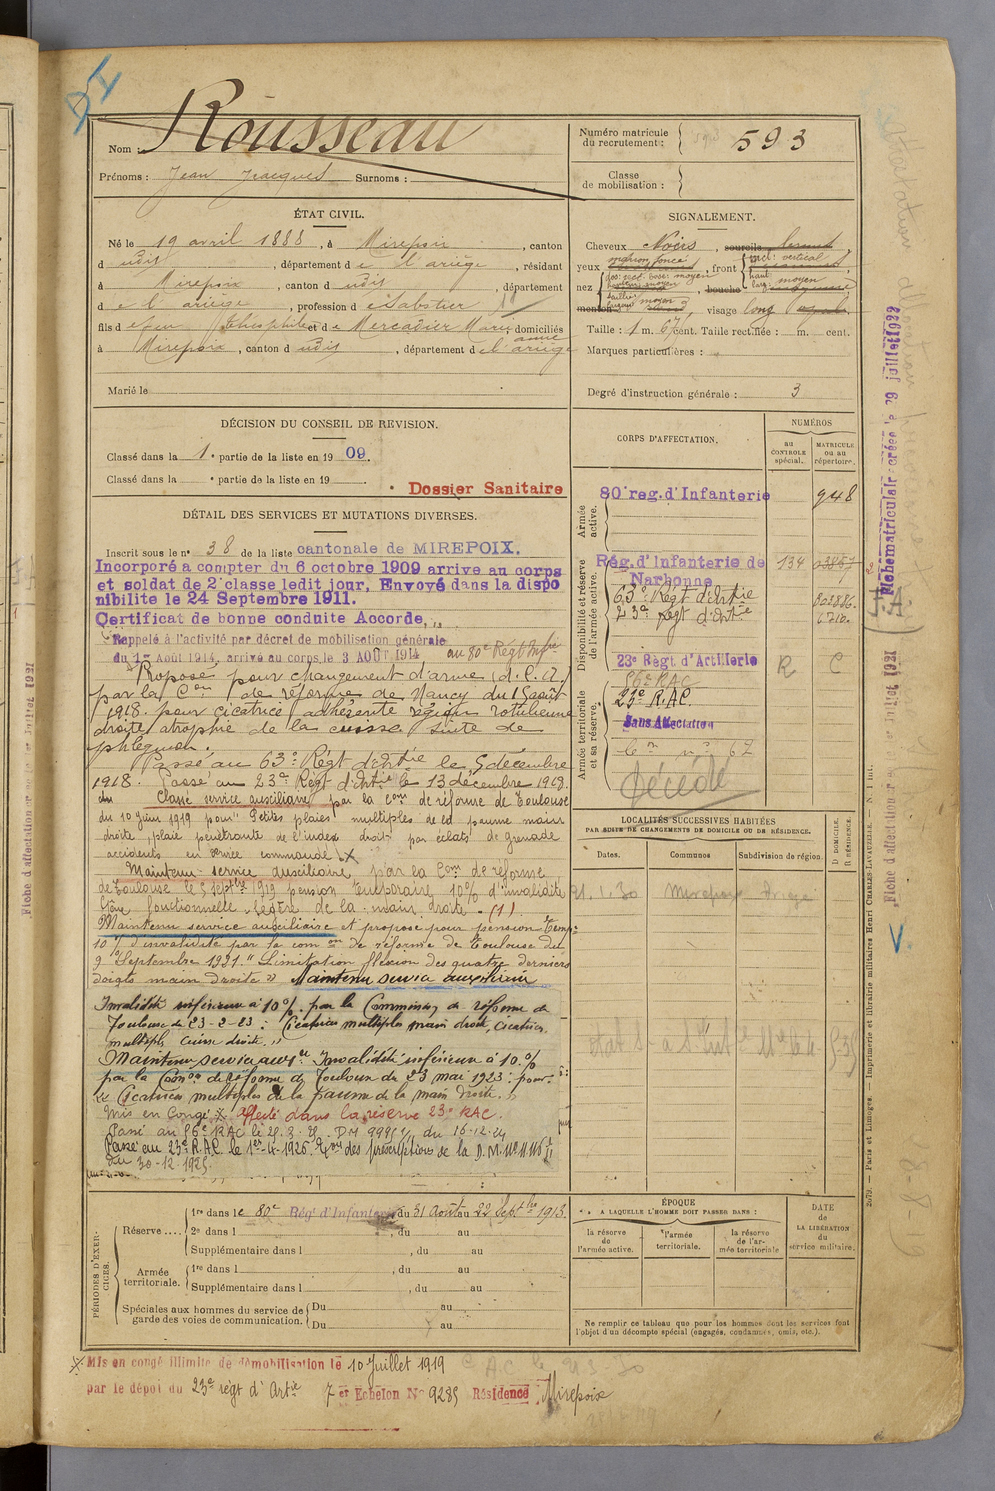 DI
Nom : Rousseau
Prénoms : Jean Jacques Surnoms :
Numéro matricule du recrutement : 593
Classe de mobilisation :
ÉTAT CIVIL.
Né le 19 avril 1888, à Mirepoix, canton
d udit, département de l'ariège, résidant
à Mirepoix, canton d udit, département
de l'ariège, profession de Sabotier
fils de feu Théophile et de Mercadier Marie anne domiciliés
à Mirepoix, canton d udit, département de l'ariège
Marié le
SIGNALEMENT.
Cheveux Noirs, sourcils
yeux marron foncé, front incl: vertical haut: moyen larg:
nez dos: rect. base: moyen, bouche
menton, visage long
Taille : 1 m. 67 cent. Taille rectifiée : m. cent.
Marques particulières :
Degré d'instruction générale : 3
DÉCISION DU CONSEIL DE REVISION.
Classé dans la 1e partie de la liste en 1909.
Classé dans la e partie de la liste en 19
Dossier Sanitaire
DÉTAIL DES SERVICES ET MUTATIONS DIVERSES.
Inscrit sous le no 38 de la liste cantonale de MIREPOIX.
Incorporé a compter du 6 octobre 1909 arrive au corps
et soldat de 2e classe ledit jour, Envoyé dans la dispo
nibilite le 24 Septembre 1911.
Certificat de bonne conduite Accorde.
Rappelé à l'activité par décret de mobilisation générale
du 1er Août 1914, arrivé au corps le 3 AOÛT 1914 au 80e Régt Infie
Proposé pour changement d'arme (d. C. A.)
par la Con de réforme de Nancy du 15 août
1918. pour cicatrice adhérente région rotulienne
droite atrophie de la cuisse suite de
phlegmon.
Passé au 63e Régt d'Artie le 5 décembre
1918. Passé au 23e Régt d'Artie le 13 décembre 1918.
Classé service auxiliaire par la Com de réforme de Toulouse
du 10 Juin 1919 pour "Petites plaies multiples de la paume main
droite, plaie pénétrante de l'index droit par éclats de grenade
accidents en service commandé X
Maintenu service auxiliaire par la Con de réforme
de Toulouse le 5 septbre 1919 pension temporaire 10% d'invalidité
Gêne fonctionnelle légère de la main droite. (1)
Maintenu service auxiliaire et proposé pour pension temp.
10% d'invalidité par la com on de réforme de Toulouse du
9 Septembre 1921. "Limitation flexion des quatre derniers
doigts main droite" Maintenu service auxiliaire
Invalidité inférieure à 10% par la Commission de réforme de
Toulouse du 23-2-23 : Cicatrices multiples main droite, cicatrices
multiples cuisse droite.,,
Maintenu service auxre Invalidité inférieure à 10%
par la Comon de réforme de Toulouse du 23 mai 1923 : pour
"Cicatrices multiples de la paume de la main droite."
Mis en Congé X affecté dans la réserve 23e RAC.
Passé au 56e RAC le
Passé au 23e R.A.C. le 1er-4-1926. Exon des prescriptions de la D.M.
du 30-12-1925.
CORPS D'AFFECTATION.
NUMÉROS
au CONTROLE spécial.
MATRICULE ou au répertoire.
Armée active.
80e reg. d'Infanterie 948
Disponibilité et réserve de l'armée active.
Rég. d'Infanterie de Narbonne 134
63e Régt d'Artie
23e Régt d'Artie
23e Règt d'Artillerie R C
Armée territoriale et sa réserve.
56e RAC
23e R.A.C.
Sans Affectation
Décédé
LOCALITÉS SUCCESSIVES HABITÉES
PAR SUITE DE CHANGEMENTS DE DOMICILE OU DE RÉSIDENCE.
Dates. Communes Subdivision de région. D DOMICILE. R RÉSIDENCE.
21.1.30 Mirepoix Ariège
PÉRIODES D'EXERCICES.
Réserve .... 1re dans le 80e Rég' d'Infanterie du 31 Août au 22 Septbre 1913.
2e dans l , du au
Supplémentaire dans l , du au
Armée territoriale. 1re dans l , du au
Supplémentaire dans l , du au
Spéciales aux hommes du service de garde des voies de communication. Du au
Du au
ÉPOQUE
A LAQUELLE L'HOMME DOIT PASSER DANS :
la réserve de l'armée active.
l'armée territoriale.
la réserve de l'armée territoriale
DATE de LA LIBÉRATION du service militaire.
Ne remplir ce tableau que pour les hommes dont les services font
l'objet d'un décompte spécial (engagés, condamnés, omis, etc.).
X Mis en congé illimité de démobilisation le 10 Juillet 1919
par le dépôt du 23e règt d'Artie 7 et Echelon No 9285 Résidence Mirepoix
Fiche matriculaire créée le 29 juillet 1922
2079. — Paris et Limoges. — Imprimerie et librairie militaires Henri CHARLES-LAVAUZELLE. — N. 1 Int.